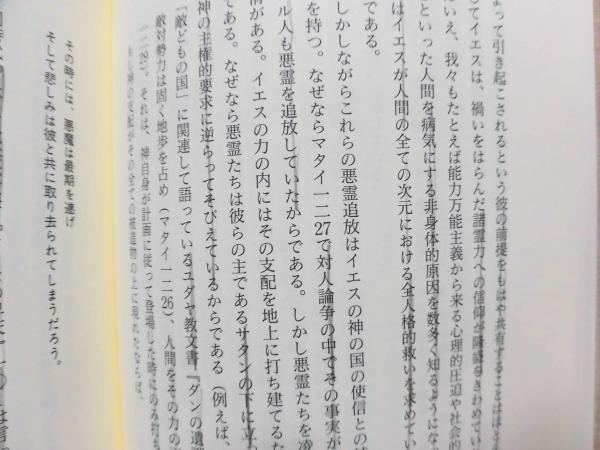 よって引き起こされるという彼の前提をもはや共有することは
してイエスは、禍いをはらんだ諸霊力への信仰が隆盛をきわめてい
いえ、我々もたとえば能力万能主義から来る心理的圧迫や社会的
といった人間を病気にする非身体的原因を数多く知るようにな
はイエスが人間の全ての次元における全人格的救いを求めてい
である。
しかしながらこれらの悪霊追放はイエスの神の国の使信との
を持つ。なぜならマタイ一二27で対人論争の中でその事実が
ル人も悪霊を追放していたからである。しかし悪霊たちを凌
情がある。イエスの力の内にはその支配を地上に打ち建てるた
である。なぜなら悪霊たちは彼らの主であるサタンの下に立っ
神の主権的要求に逆らってそびえているからである（例えば、
「敵どもの国」に関連して語っているユダヤ教文書『ダンの遺
敵対勢力は固く地歩を占め（マタイ一二26）、人間をその力の
一二28）。それは、神自身が計画に従って登場した時にのみ打ち
し神の支配がその全ての被造物の上に現れたならば、
その時には、悪魔は最期を遂げ
そして悲しみは彼と共に取り去られてしまうだろう。